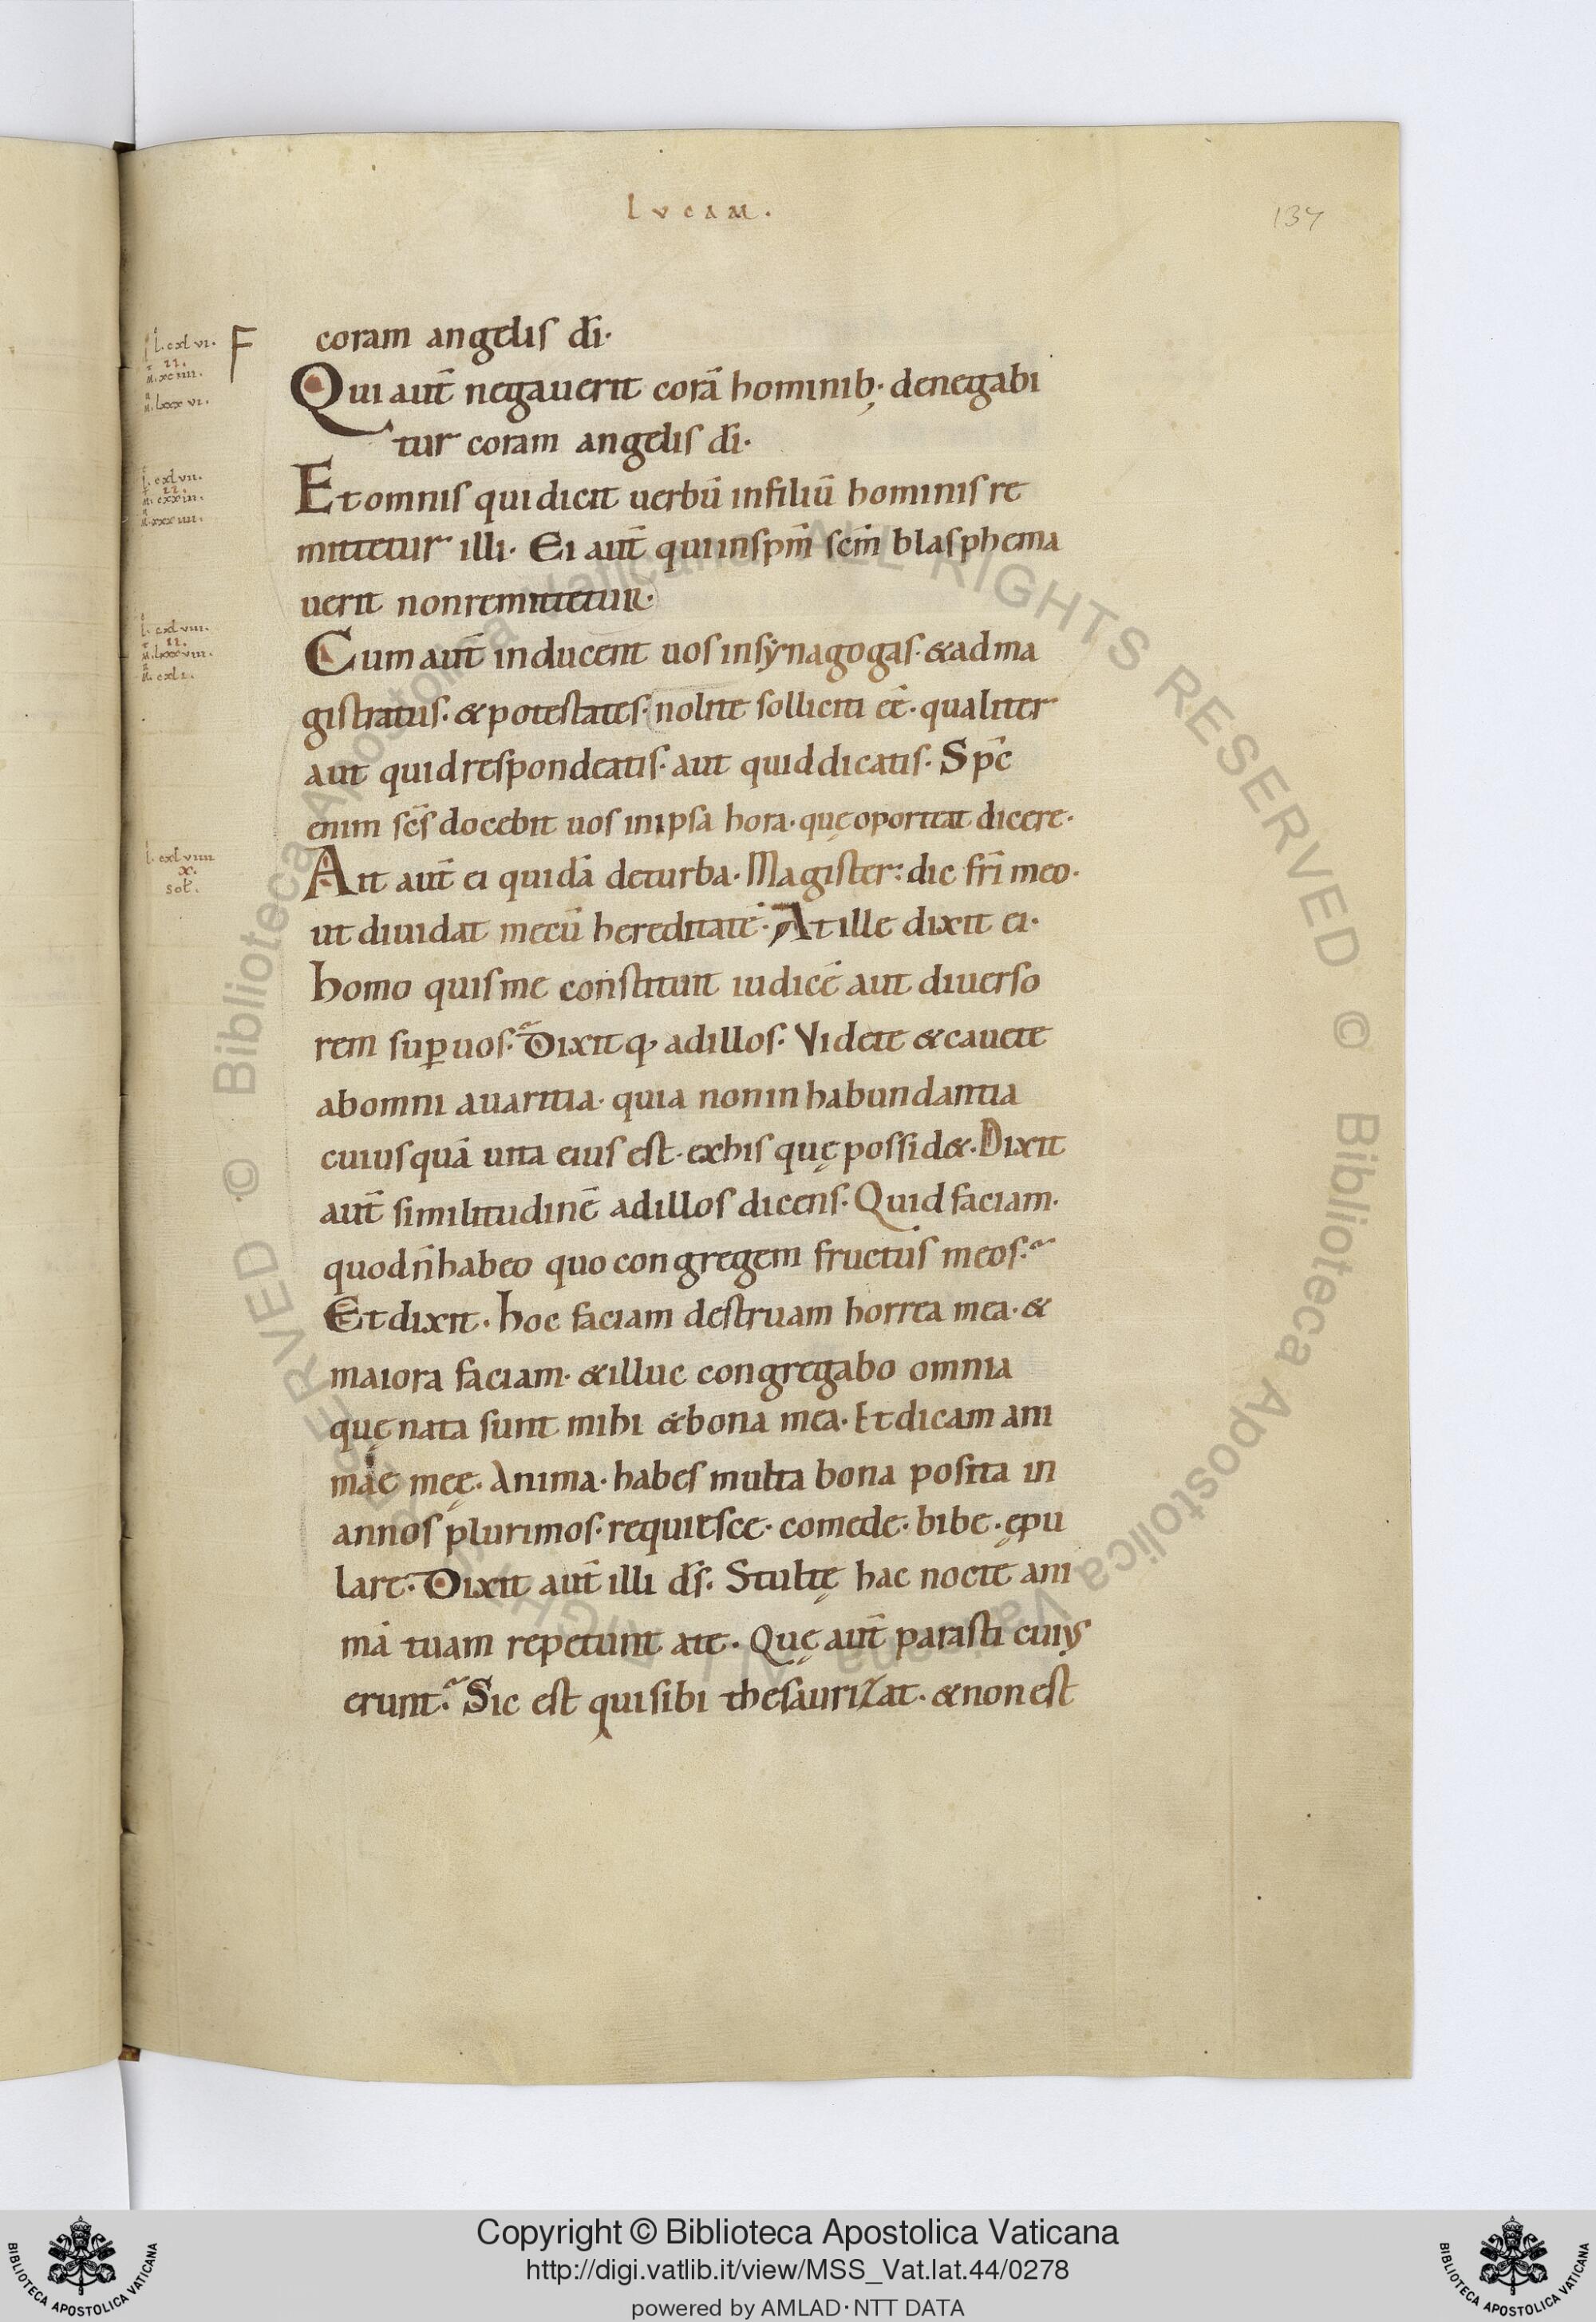 lvcam.
137
l. cxl vi.
ii.
m. xc iiii.
m. lxxx vi.
F
coram angelis dī·
Qui aut̄ negauerit corā hominib;· denegabi
tur coram angelis dī·
l. cxl vii.
ii.
m. cxxiii.
m. xxx iiii.
Et omnis qui dicit uerbū infiliū hominis re
mittetur illi· Ei aut̄ qui inspm̄ scm̄ blasphema
uerit non remittetur·
l. cxl viii.
ii.
m. lxxxviii.
m. cxl i.
Cum aut̄ inducent uos insynagogas· & ad ma
gistratus· & potestates· nolite solliciti eē· qualiter
aut quid respondeatis· aut quid dicatis· Spc̄
enim scs̄ docebit uos in ipsa hora· quę oporteat dicere·
l. cxl viiii
x.
sol̄.
Ait aut̄ ei quidā deturba· Magister: dic frī meo·
ut diuidat mecū hereditatē· At ille dixit ei·
homo quis me constituit iudicē aut diuerso
rem sup̱ uos·͛ Dixit q, adillos· Videte & cauete
abomni auaritia· quia non in habundantia
cuiusquā uita eius est· exhis quę possid&· Dixit
aut̄ similitudinē adillos dicens· Quid faciam·
quod n̄ habeo quo congregem fructus meos·͛
Et dixit· hoc faciam destruam horrea mea· &
maiora faciam· & illuc congregabo omnia
quę nata sunt mihi & bona mea· Et dicam ani
mae męę· Anima· habes multa bona posita in
annos plurimos· requiesce· comede· bibe· ępu
lare· Dixit aut̄ illi ds̄· Stultę hac nocte ani
mā tuam repetunt ate· Quę aut̄ parasti cuius
erunt·͛ Sic est qui sibi thesaurizat· & non est
© Biblioteca Apostolica Vaticana ALL RIGHTS RESERVED
© Biblioteca Apostolica Vaticana ALL RIGHTS RESERVED
Copyright © Biblioteca Apostolica Vaticana
http://digi.vatlib.it/view/MSS_Vat.lat.44/0278
powered by AMLAD·NTT DATA
BIBLIOTECA APOSTOLICA VATICANA
BIBLIOTECA APOSTOLICA VATICANA